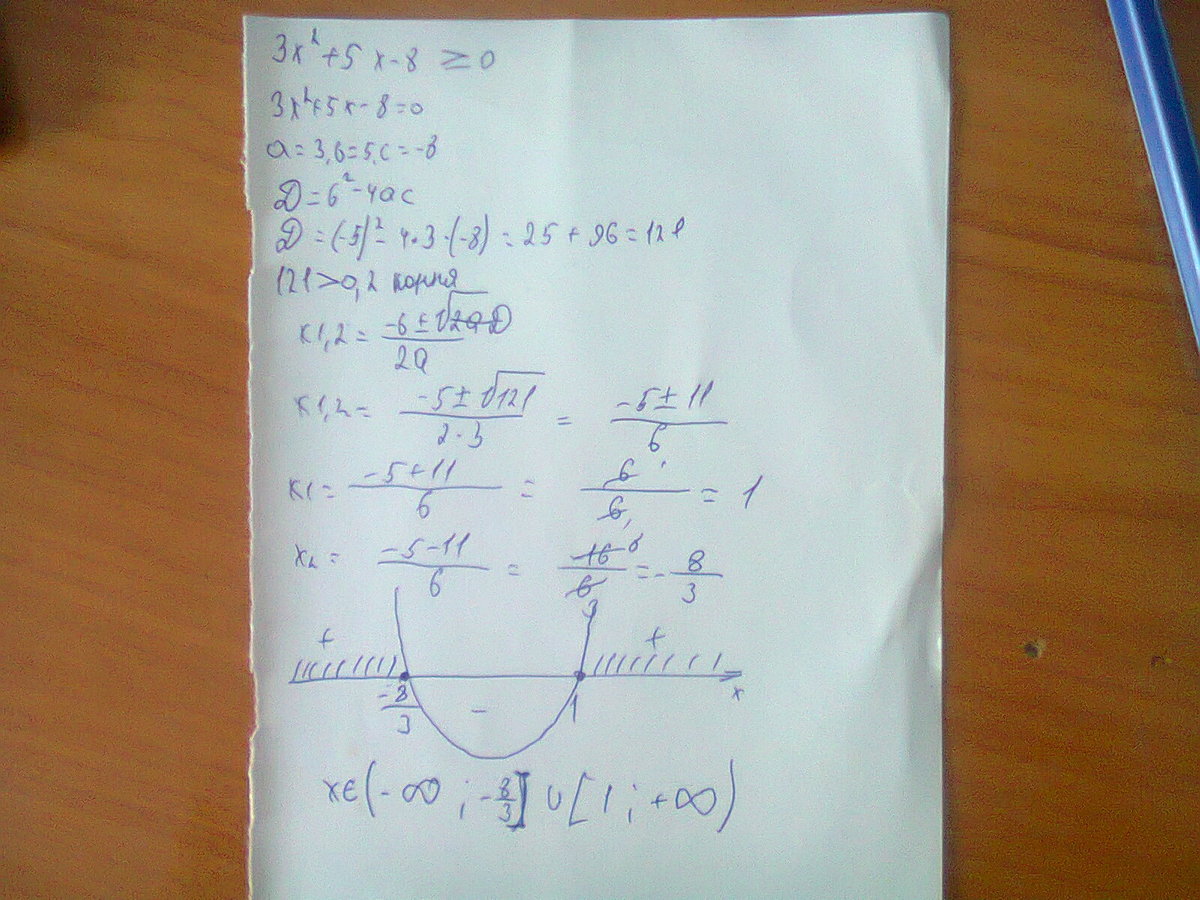 3x²+5x-8 ≥ 0
3x²+5x-8=0
a=3, b=5, c=-8
D=b²-4ac
D=(-5)²-4·3·(-8)=25+96=121
121>0, 2 корня
x1,2 = (-b±√D)/2a
x1,2 = (-5±√121)/(2·3) = (-5±11)/6
x1 = (-5+11)/6 = 6/6 = 1
x2 = (-5-11)/6 = -16/6 = -8/3
+ +
-8/3 - 1 x
x∈(-∞; -8/3] ∪ [1; +∞)